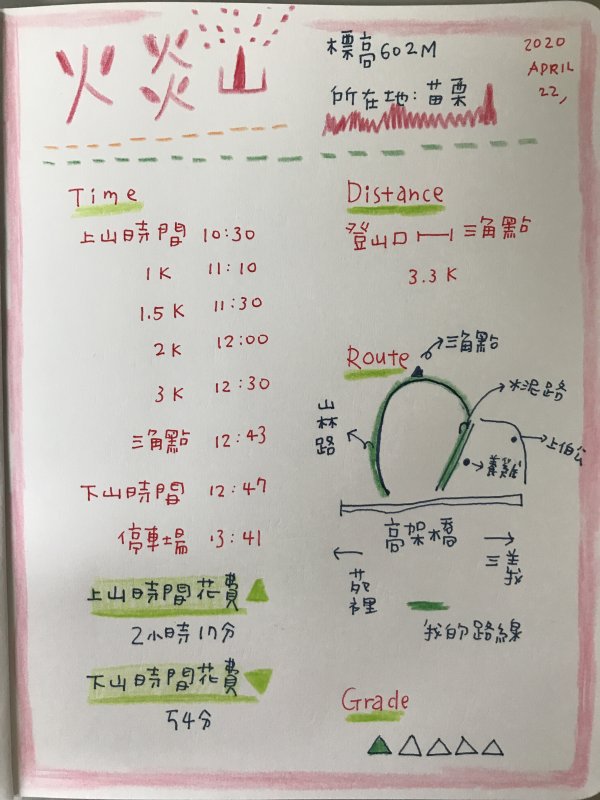 火炎山
標高602M
所在地:苗栗
2020
APRIL
22,
Time
上山時間 10:30
1K 11:10
1.5K 11:30
2K 12:00
3K 12:30
三角點 12:43
下山時間 12:47
停車場 13:41
上山時間花費
2小時17分
下山時間花費
54分
Distance
登山口 三角點
3.3K
Route
三角點
水泥路
山林路
上伯公
養雞
高架橋
苑裡
三義
我的路線
Grade